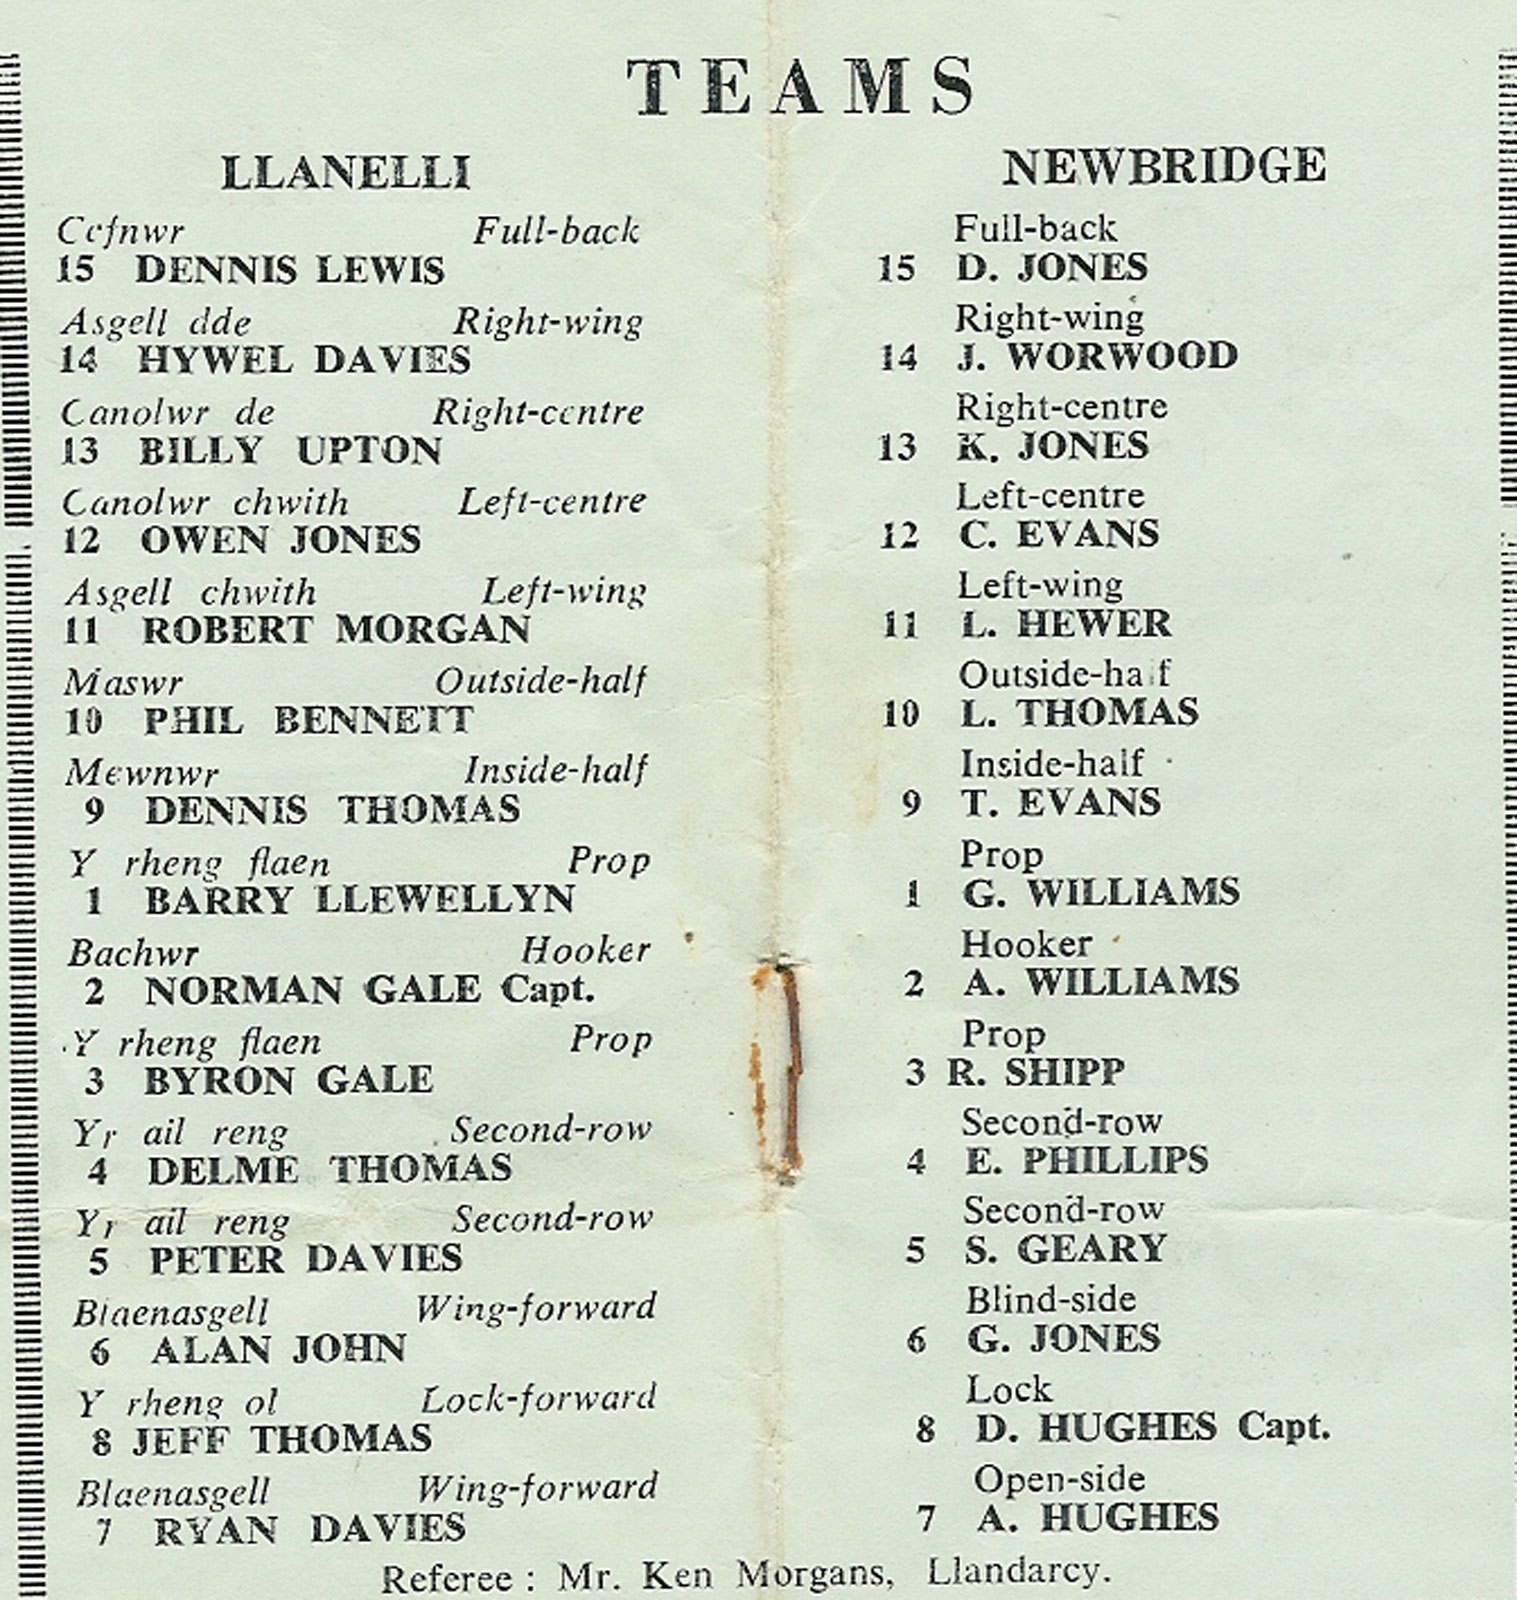 TEAMS
LLANELLI
Cefnwr Full-back
15 DENNIS LEWIS
Asgell dde Right-wing
14 HYWEL DAVIES
Canolwr de Right-centre
13 BILLY UPTON
Canolwr chwith Left-centre
12 OWEN JONES
Asgell chwith Left-wing
11 ROBERT MORGAN
Maswr Outside-half
10 PHIL BENNETT
Mewnwr Inside-half
9 DENNIS THOMAS
Y rheng flaen Prop
1 BARRY LLEWELLYN
Bachwr Hooker
2 NORMAN GALE Capt.
Y rheng flaen Prop
3 BYRON GALE
Yr ail reng Second-row
4 DELME THOMAS
Yr ail reng Second-row
5 PETER DAVIES
Blaenasgell Wing-forward
6 ALAN JOHN
Y rheng ol Lock-forward
8 JEFF THOMAS
Blaenasgell Wing-forward
7 RYAN DAVIES
NEWBRIDGE
Full-back
15 D. JONES
Right-wing
14 J. WORWOOD
Right-centre
13 K. JONES
Left-centre
12 C. EVANS
Left-wing
11 L. HEWER
Outside-half
10 L. THOMAS
Inside-half
9 T. EVANS
Prop
1 G. WILLIAMS
Hooker
2 A. WILLIAMS
Prop
3 R. SHIPP
Second-row
4 E. PHILLIPS
Second-row
5 S. GEARY
Blind-side
6 G. JONES
Lock
8 D. HUGHES Capt.
Open-side
7 A. HUGHES
Referee : Mr. Ken Morgans, Llandarcy.